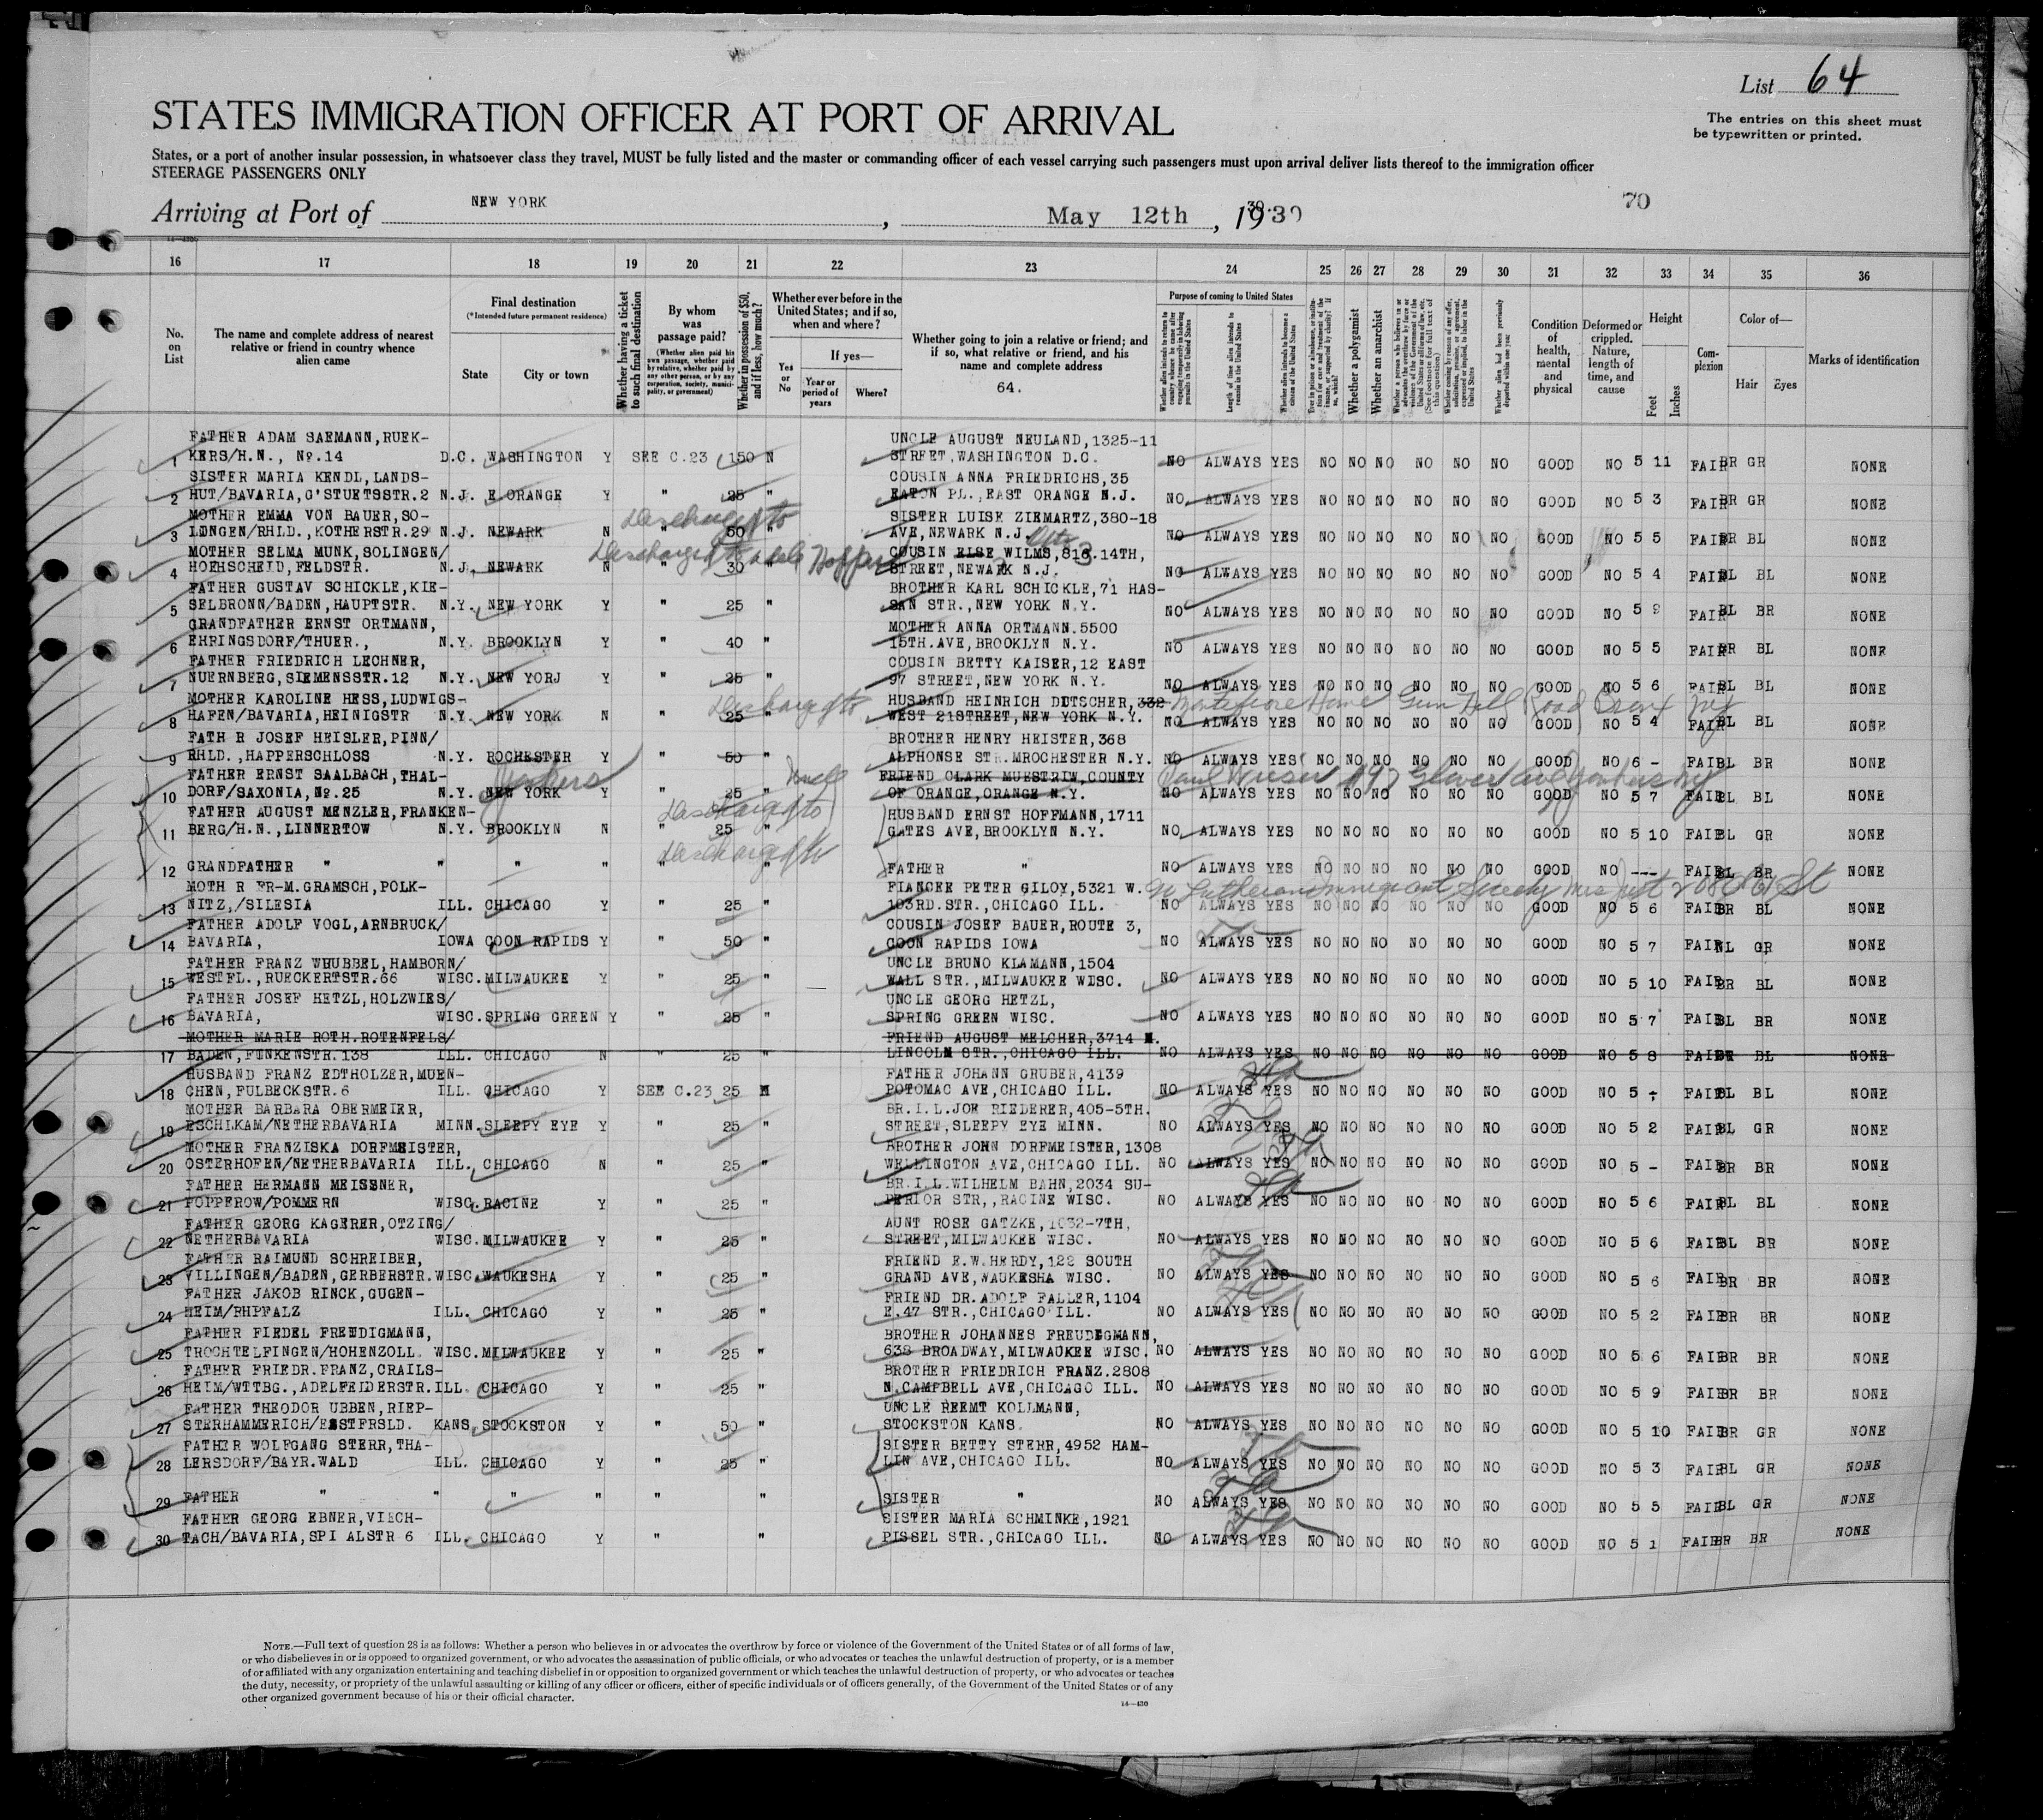 List 64
STATES IMMIGRATION OFFICER AT PORT OF ARRIVAL
The entries on this sheet must
be typewritten or printed.
States, or a port of another insular possession, in whatsoever class they travel, MUST be fully listed and the master or commanding officer of each vessel carrying such passengers must upon arrival deliver lists thereof to the immigration officer
STEERAGE PASSENGERS ONLY
Arriving at Port of NEW YORK, May 12th, 1930
70
16 17 18 19 20 21 22 23 24 25 26 27 28 29 30 31 32 33 34 35 36
No. on List
The name and complete address of nearest relative or friend in country whence alien came
Final destination
(*Intended future permanent residence)
State
City or town
Whether having a ticket to such final destination
By whom was passage paid?
(Whether alien paid his own passage, whether paid by relative, whether paid by any other person, or by any corporation, society, municipality, or government)
Whether in possession of $50, and if less, how much?
Whether ever before in the United States; and if so, when and where?
Yes or No
If yes—
Year or period of years
Where?
Whether going to join a relative or friend; and if so, what relative or friend, and his name and complete address
64.
Purpose of coming to United States
Length of time alien intends to remain in the United States
Whether alien intends to become a citizen of the United States
Whether a polygamist
Whether an anarchist
Condition of health, mental and physical
Deformed or crippled. Nature, length of time, and cause
Height
Feet
Inches
Complexion
Color of—
Hair
Eyes
Marks of identification
FATHER ADAM SAEMANN,RUEK- UNCLE AUGUST NEULAND,1325-11
1 KERS/H.N., No.14 D.C. WASHINGTON Y SEE C.23 150 N STREET,WASHINGTON D.C. NO ALWAYS YES NO NO NO NO NO NO GOOD NO 5 11 FAIR BR GR NONE
SISTER MARIA KENDL,LANDS- COUSIN ANNA FRIEDRICHS,35
2 HUT/BAVARIA,G'STUETSSTR.2 N.J. E.ORANGE Y " 25 " EATON PL.,EAST ORANGE N.J. NO ALWAYS YES NO NO NO NO NO NO GOOD NO 5 3 FAIR BR GR NONE
MOTHER EMMA VON BAUER,SO- Discharged to SISTER LUISE ZIEMARTZ,380-18
3 LINGEN/RHLD.,KOTHERSTR.29 N.J. NEWARK N " 50 " AVE,NEWARK N.J. NO ALWAYS YES NO NO NO NO NO NO GOOD NO 5 5 FAIR BR BL NONE
MOTHER SELMA MUNK,SOLINGEN/ Discharged to COUSIN ELSE WILMS,818.14TH,
4 HOEHSCHEID,FELDSTR. N.J. NEWARK N " 30 " STREET,NEWARK N.J. NO ALWAYS YES NO NO NO NO NO NO GOOD NO 5 4 FAIR BL BL NONE
FATHER GUSTAV SCHICKLE,KIE- BROTHER KARL SCHICKLE,71 HAS-
5 SELBRONN/BADEN,HAUPTSTR. N.Y. NEW YORK Y " 25 " SAN STR.,NEW YORK N.Y. NO ALWAYS YES NO NO NO NO NO NO GOOD NO 5 9 FAIR BL BR NONE
GRANDFATHER ERNST ORTMANN, MOTHER ANNA ORTMANN.5500
6 EHRINGSDORF/THUER., N.Y. BROOKLYN Y " 40 15TH.AVE,BROOKLYN N.Y. NO ALWAYS YES NO NO NO NO NO NO GOOD NO 5 5 FAIR BR BL NONE
FATHER FRIEDRICH LECHNER, COUSIN BETTY KAISER,12 EAST
7 NUERNBERG,SIEMENSSTR.12 N.Y. NEW YORJ Y " 25 " 97 STREET,NEW YORK N.Y. NO ALWAYS YES NO NO NO NO NO NO GOOD NO 5 6 FAIR BL BL NONE
MOTHER KAROLINE HESS,LUDWIGS- Discharged to HUSBAND HEINRICH DETSCHER,332 Montefiore Home Gun Hill Road Bronx NY
8 HAFEN/BAVARIA,HEINIGSTR N.Y. NEW YORK N " 25 " WEST 21STREET,NEW YORK N.Y. NO ALWAYS YES NO NO NO NO NO NO GOOD NO 5 4 FAIR BL BL NONE
FATH R JOSEF HEISLER,PINN/ BROTHER HENRY HEISTER,368
9 RHLD.,HAPPERSCHLOSS N.Y. ROCHESTER Y " 50 " ALPHONSE STR.MROCHESTER N.Y. NO ALWAYS YES NO NO NO NO NO NO GOOD NO 6 - FAIR BL BR NONE
FATHER ERNST SAALBACH,THAL- Yonkers Uncle FRIEND CLARK MUESTRIW,COUNTY
10 DORF/SAXONIA,No.25 N.Y. NEW YORK Y " 25 " OF ORANGE,ORANGE N.Y. NO ALWAYS YES NO NO NO NO NO NO GOOD NO 5 7 FAIR BL BL NONE
FATHER AUGUST MENZLER,FRANKEN- Discharged to HUSBAND ERNST HOFFMANN,1711
11 BERG/H.N.,LINNERTOW N.Y. BROOKLYN N " 25 " GATES AVE,BROOKLYN N.Y. NO ALWAYS YES NO NO NO NO NO NO GOOD NO 5 10 FAIR BL GR NONE
Discharged to
12 GRANDFATHER " " " " " " FATHER " NO ALWAYS YES NO NO NO NO NO NO GOOD NO --- FAIR BL BR NONE
MOTH R FR-M.GRAMSCH,POLK- FIANCEE PETER GILOY,5321 W.
13 NITZ,/SILESIA ILL. CHICAGO Y " 25 " 103RD.STR.,CHICAGO ILL. NO ALWAYS YES NO NO NO NO NO NO GOOD NO 5 6 FAIR BR BL NONE
FATHER ADOLF VOGL,ARNBRUCK/ COUSIN JOSEF BAUER,ROUTE 3,
14 BAVARIA, IOWA COON RAPIDS Y " 50 " COON RAPIDS IOWA NO ALWAYS YES NO NO NO NO NO NO GOOD NO 5 7 FAIR NL GR NONE
FATHER FRANZ WHUBBEL,HAMBORN/ UNCLE BRUNO KLAMANN,1504
15 WESTFL.,RUECKERTSTR.66 WISC. MILWAUKEE Y " 25 " WALL STR.,MILWAUKEE WISC. NO ALWAYS YES NO NO NO NO NO NO GOOD NO 5 10 FAIR BR BL NONE
FATHER JOSEF HETZL,HOLZWIES/ UNCLE GEORG HETZL,
16 BAVARIA, WISC. SPRING GREEN Y " 25 " SPRING GREEN WISC. NO ALWAYS YES NO NO NO NO NO NO GOOD NO 5 7 FAIR BL BR NONE
MOTHER MARIE ROTH.ROTENFELS/ FRIEND AUGUST MELCHER,3714 N.
17 BADEN,FINKENSTR.138 ILL. CHICAGO N " 25 " LINCOLN STR.,CHICAGO ILL. NO ALWAYS YES NO NO NO NO NO NO GOOD NO 5 8 FAIR BR BL NONE
HUSBAND FRANZ EDTHOLZER,MUEN- FATHER JOHANN GRUBER,4139
18 CHEN,FULBECKSTR.6 ILL. CHICAGO Y SEE C.23 25 N POTOMAC AVE,CHICAHO ILL. NO ALWAYS YES NO NO NO NO NO NO GOOD NO 5 - FAIR BL BL NONE
MOTHER BARBARA OBERMEIER, BR.I.L.JOE RIEDERER,405-5TH.
19 ESCHLKAM/NETHERBAVARIA MINN. SLEEPY EYE Y " 25 " STREET,SLEEPY EYE MINN. NO ALWAYS YES NO NO NO NO NO NO GOOD NO 5 2 FAIR BL GR NONE
MOTHER FRANZISKA DORFMEISTER, BROTHER JOHN DORFMEISTER,1308
20 OSTERHOFEN/NETHERBAVARIA ILL. CHICAGO N " 25 " WELLINGTON AVE,CHICAGO ILL. NO ALWAYS YES NO NO NO NO NO NO GOOD NO 5 - FAIR BR BR NONE
FATHER HERMANN MEISSNER, BR.I.L.WILHELM BAHN,2034 SU-
21 POPPEROW/POMMERN WISC. RACINE Y " 25 " PERIOR STR,,RACINE WISC. NO ALWAYS YES NO NO NO NO NO NO GOOD NO 5 6 FAIR BL BL NONE
FATHER GEORG KAGERER,OTZING/ AUNT ROSE GATZKE,1032-7TH,
22 NETHERBAVARIA WISC. MILWAUKEE Y " 25 " STREET,MILWAUKEE WISC. NO ALWAYS YES NO NO NO NO NO NO GOOD NO 5 6 FAIR BL BR NONE
FATHER RAIMUND SCHREIBER, FRIEND E.W.HERDY,122 SOUTH
23 VILLINGEN/BADEN,GERBERSTR. WISC. WAUKESHA Y " 25 " GRAND AVE,WAUKESHA WISC. NO ALWAYS YES NO NO NO NO NO NO GOOD NO 5 6 FAIR BR BR NONE
FATHER JAKOB RINCK,GUGEN- FRIEND DR.ADOLF FALLER,1104
24 HEIM/RHPFALZ ILL. CHICAGO Y " 25 " E.47 STR.,CHICAGO ILL. NO ALWAYS YES NO NO NO NO NO NO GOOD NO 5 2 FAIR BR BR NONE
FATHER FIEDEL FREUDIGMANN, BROTHER JOHANNES FREUDEGMANN,
25 TROCHTELFINGEN/HOHENZOLL. WISC. MILWAUKEE Y " 25 " 638 BROADWAY,MILWAUKEE WISC. NO ALWAYS YES NO NO NO NO NO NO GOOD NO 5 6 FAIR BR BR NONE
FATHER FRIEDR.FRANZ,CRAILS- BROTHER FRIEDRICH FRANZ.2808
26 HEIM/WTTBG.,ADELFEIDERSTR. ILL. CHICAGO Y " 25 " N.CAMPBELL AVE,CHICAGO ILL. NO ALWAYS YES NO NO NO NO NO NO GOOD NO 5 9 FAIR BR BR NONE
FATHER THEODOR UBBEN,RIEP- UNCLE REEMT KOLLMANN,
27 STERHAMMERICH/ESSTFRSLD. KANS. STOCKSTON Y " 50 " STOCKSTON KANS. NO ALWAYS YES NO NO NO NO NO NO GOOD NO 5 10 FAIR BR GR NONE
FATHER WOLFGANG STERR,THA- SISTER BETTY STEHR,4952 HAM-
28 LERSDORF/BAYR.WALD ILL. CHICAGO Y " 25 " LIN AVE,CHICAGO ILL. NO ALWAYS YES NO NO NO NO NO NO GOOD NO 5 3 FAIR BL GR NONE
29 FATHER " " " " " " SISTER " NO ALWAYS YES NO NO NO NO NO NO GOOD NO 5 5 FAIR BL GR NONE
FATHER GEORG EBNER,VIECH- SISTER MARIA SCHMINKE,1921
30 TACH/BAVARIA,SPI ALSTR 6 ILL. CHICAGO Y " " PISSEL STR.,CHICAGO ILL. NO ALWAYS YES NO NO NO NO NO NO GOOD NO 5 1 FAIR BR BR NONE
NOTE.—Full text of question 28 is as follows: Whether a person who believes in or advocates the overthrow by force or violence of the Government of the United States or of all forms of law,
or who disbelieves in or is opposed to organized government, or who advocates the assassination of public officials, or who advocates or teaches the unlawful destruction of property, or is a member
of or affiliated with any organization entertaining and teaching disbelief in or opposition to organized government or which teaches the unlawful destruction of property, or who advocates or teaches
the duty, necessity, or propriety of the unlawful assaulting or killing of any officer or officers, either of specific individuals or of officers generally, of the Government of the United States or of any
other organized government because of his or their official character.
14—430